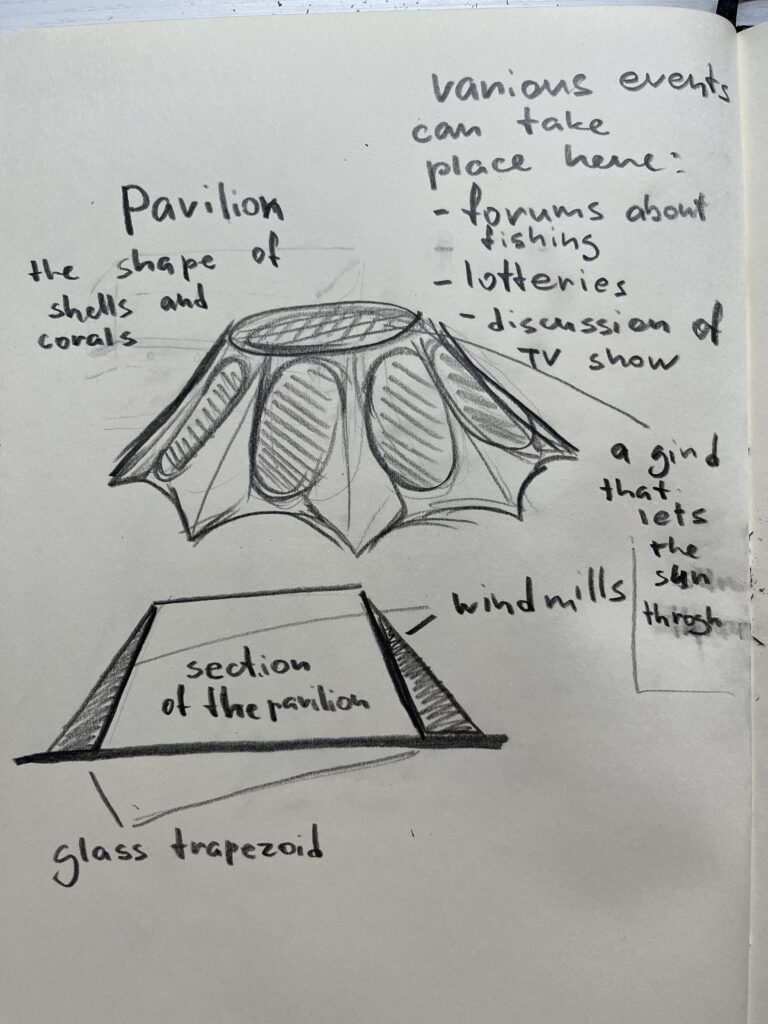 various events
can take
place here:
- forums about
- fishing
- lotteries
- discussion of
TV show
Pavilion
the shape of
shells and
corals
a grid
that
lets
the
sun
throgh
windmills
section
of the pavilion
glass trapezoid